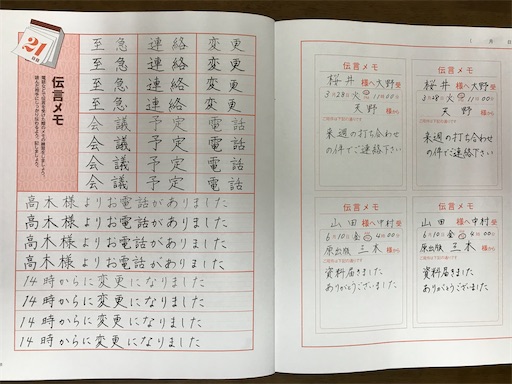 21
日目
伝言メモ
至急 連絡 変更
至急 連絡 変更
至急 連絡 変更
至急 連絡 変更
会議 予定 電話
会議 予定 電話
会議 予定 電話
会議 予定 電話
高木様よりお電話がありました
高木様よりお電話がありました
高木様よりお電話がありました
高木様よりお電話がありました
14時からに変更になりました
14時からに変更になりました
14時からに変更になりました
14時からに変更になりました
( 月 日)
伝言メモ
桜井 様へ 大野 受
3月28日 火 11時00分
天野 様から
ご用件は下記の通りです
来週の打ち合わせ
の件でご連絡下さい
伝言メモ
桜井 様へ 大野 受
3月28日 火 11時00分
天野 様から
ご用件は下記の通りです
来週の打ち合わせ
の件でご連絡下さい
伝言メモ
山田 様へ 中村 受
6月10日 金 4時00分
原出版 三本 様から
ご用件は下記の通りです
資料届きました
ありがとうございました
伝言メモ
山田 様へ 中村 受
6月10日 金 4時00分
原出版 三本 様から
ご用件は下記の通りです
資料届きました
ありがとうございました